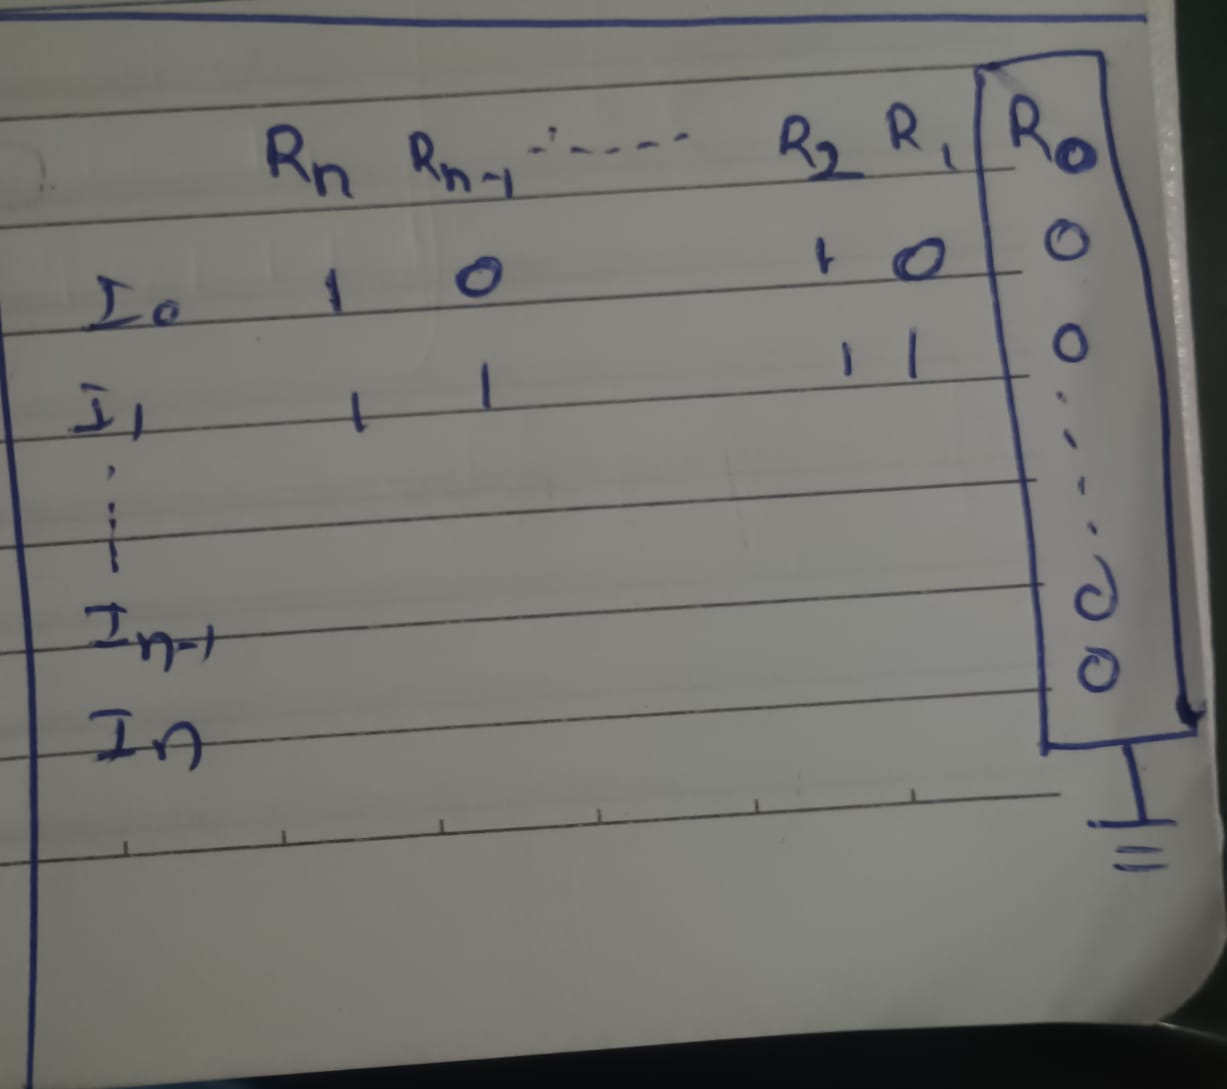 Rn Rn-1 ------ R2 R1 R0
I0 1 0 1 0 0
I1 1 1 1 1 0
In-1 0
In 0